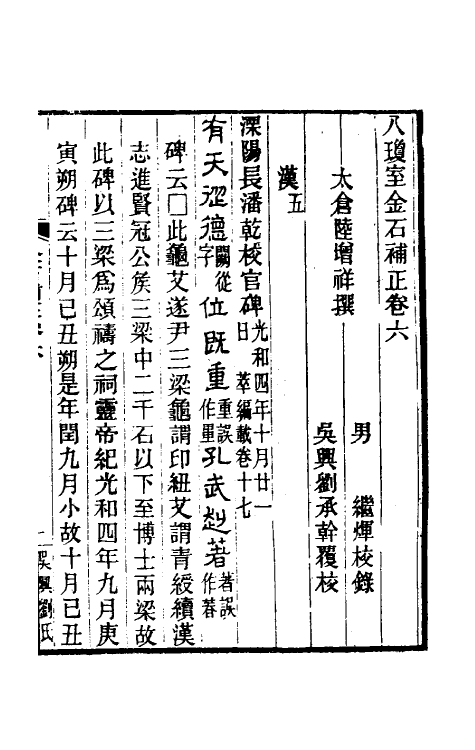 八瓊室金石補正卷六
太倉陸增祥撰
男　繼煇校錄
吳興劉承幹覆校
漢五
溧陽長潘乾校官碑光和四年十月廿一日　萃編載卷十七
有天𣸈德字闕從位既重重誤作量孔武赳著著誤作蓉
碑云囗此龜艾遂尹三梁龜謂印紐艾謂青綬續漢
志進賢冠公矦三梁中二千石以下至博士兩梁故
此碑以三梁爲頌禱之祠靈帝紀光和四年九月庚
寅朔碑云十月己丑朔是年閏九月小故十月已丑
一吳興劉氏